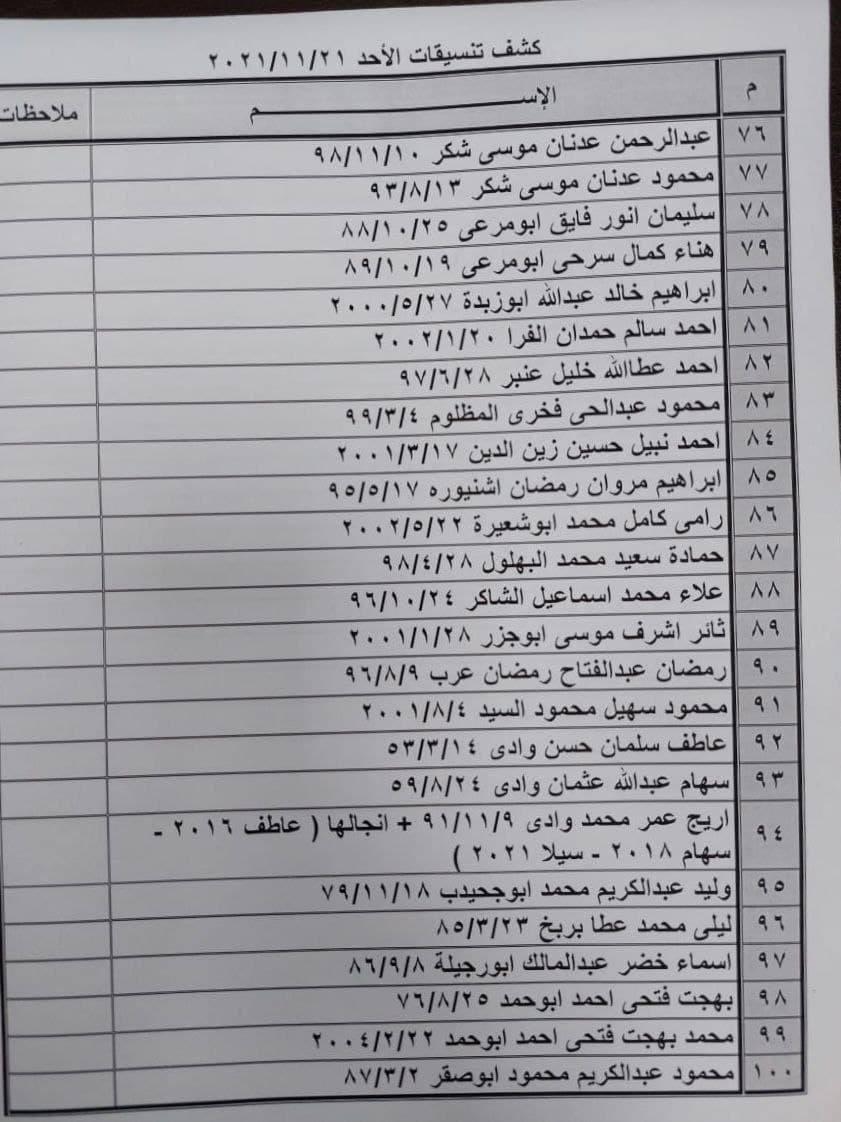 كشف تنسيقات الأحد ٢٠٢١/١١/٢١
م الإســـــم ملاحظات
٧٦ عبدالرحمن عدنان موسى شكر ٩٨/١١/١٠
٧٧ محمود عدنان موسى شكر ٩٣/٨/١٣
٧٨ سليمان انور فايق ابومرعى ٨٨/١٠/٢٥
٧٩ هناء كمال سرحى ابومرعى ٨٩/١٠/١٩
٨٠ ابراهيم خالد عبدالله ابوزبدة ٢٠٠٠/٥/٢٧
٨١ احمد سالم حمدان الفرا ٢٠٠٢/١/٢٠
٨٢ احمد عطاالله خليل عنبر ٩٧/٦/٢٨
٨٣ محمود عبدالحى فخرى المظلوم ٩٩/٣/٤
٨٤ احمد نبيل حسين زين الدين ٢٠٠١/٣/١٧
٨٥ ابراهيم مروان رمضان اشنيوره ٩٥/٥/١٧
٨٦ رامى كامل محمد ابوشعيرة ٢٠٠٢/٥/٢٢
٨٧ حمادة سعيد محمد البهلول ٩٨/٤/٢٨
٨٨ علاء محمد اسماعيل الشاكر ٩٦/١٠/٢٤
٨٩ ثائر اشرف موسى ابوجزر ٢٠٠١/١/٢٨
٩٠ رمضان عبدالفتاح رمضان عرب ٩٦/٨/٩
٩١ محمود سهيل محمود السيد ٢٠٠١/٨/٤
٩٢ عاطف سلمان حسن وادى ٥٣/٣/١٤
٩٣ سهام عبدالله عثمان وادى ٥٩/٨/٢٤
٩٤ اريج عمر محمد وادى ٩١/١١/٩ + انجالها ( عاطف ٢٠١٦ -
سهام ٢٠١٨ - سيلا ٢٠٢١ )
٩٥ وليد عبدالكريم محمد ابوجحيدب ٧٩/١١/١٨
٩٦ ليلى محمد عطا بريخ ٨٥/٣/٢٣
٩٧ اسماء خضر عبدالمالك ابورجيلة ٨٦/٩/٨
٩٨ بهجت فتحى احمد ابوحمد ٧٦/٨/٢٥
٩٩ محمد بهجت فتحى احمد ابوحمد ٢٠٠٤/٢/٢٢
١٠٠ محمود عبدالكريم محمود ابوصقر ٨٧/٣/٢